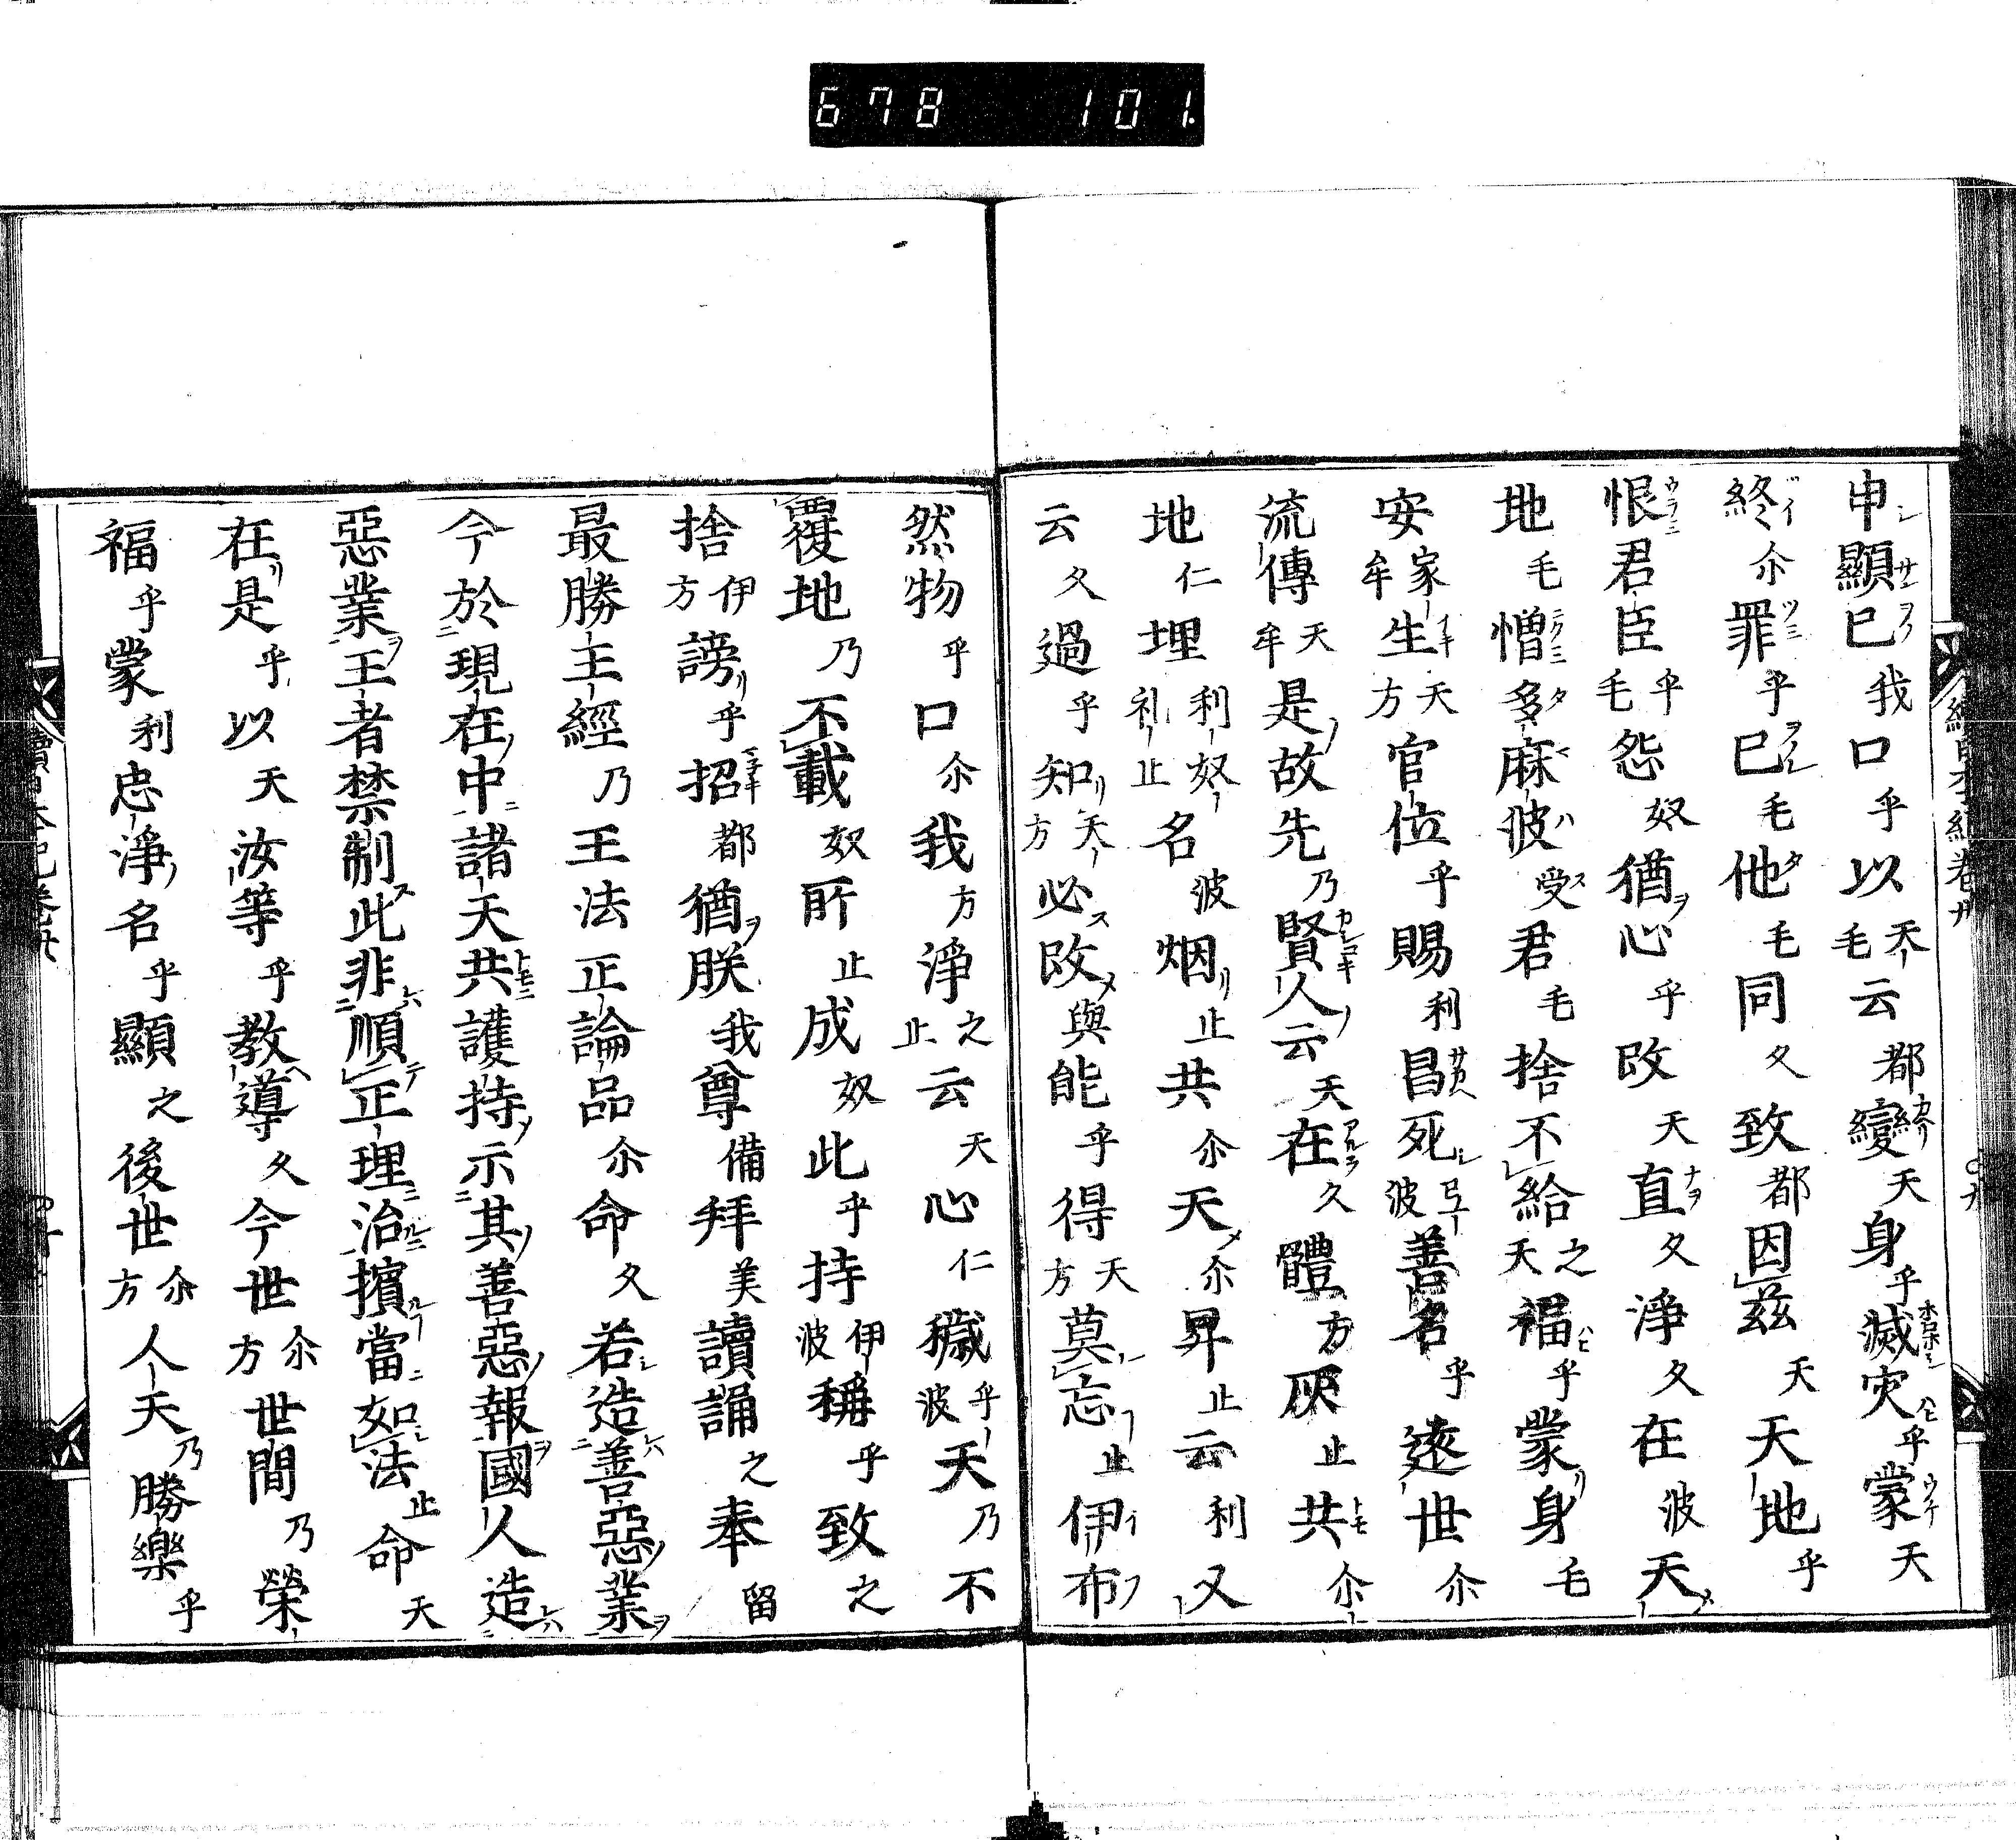 678 101.
申顯已我口乎以天毛云都變天身乎滅灾乎蒙天
終尒罪乎已毛他毛同久致都因茲天天地乎
恨君臣乎毛怨奴猶心乎改天直久淨久在波天
地毛憎多麻彼受君毛捨不給之天福乎蒙身毛
安家牟生天方官位乎賜利昌死波善名乎遠世尒
流傳天牟是故先乃賢人云天在久體方灰止共尒
地仁埋利奴礼止名波烟止共尒天尒昇止云利又
云久過乎知天方必改與能乎得天方莫忘止伊布
然物乎口尒我方淨之止云天心仁穢乎波天乃不
覆地乃不載奴所止成奴此乎持伊波稱乎致之
捨伊方謗乎招都猶朕我尊備拜美讀誦之奉留
最勝王經乃王法正論品尒命久若造善惡業
今於現在中諸天共護持示其善惡報國人造
惡業王者禁制此非順正理治擯當如法止命天
在是乎以天汝等乎教導久今世尒方世間乃榮
福乎蒙利忠淨名乎顯之後世尒方人天乃勝樂乎